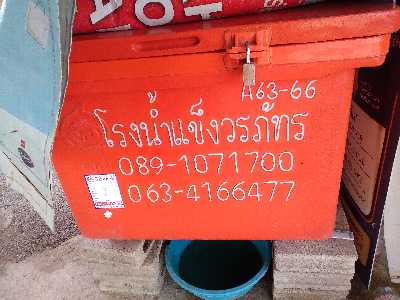 A63-66
โรงน้ำแข็งวรภัทร
089-1071700
063-4166477